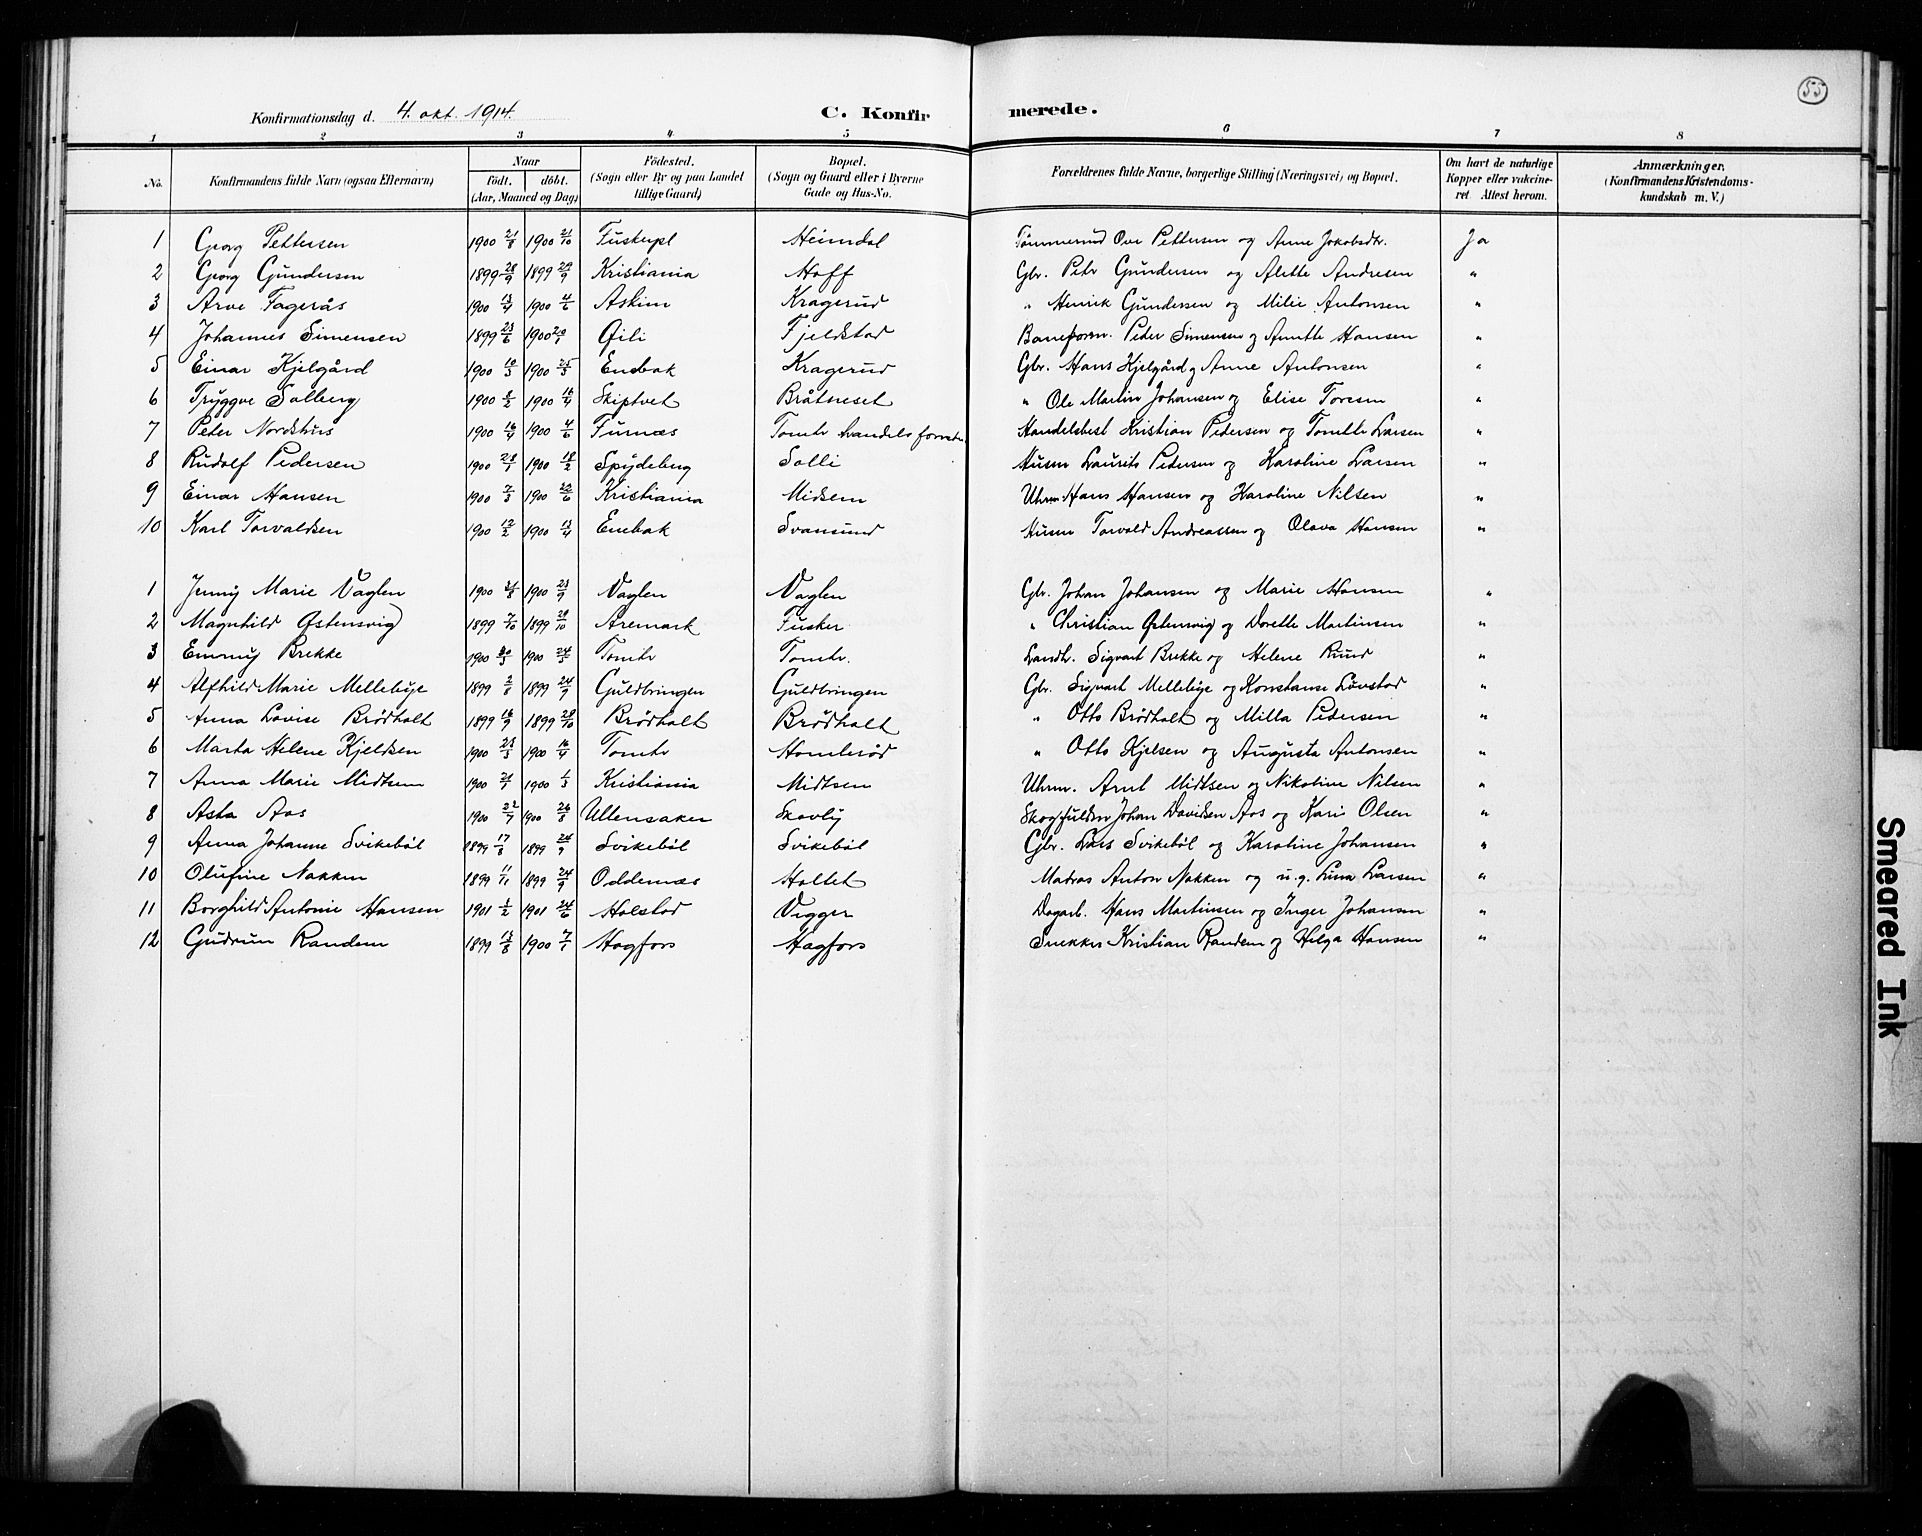 55
Konfirmationsdag d. 4. okt. 1914. C. Konfir merede.
1 2 3 4 5 6 7 8
No. Konfirmandens fulde Navn (ogsaa Efternavn) Naar født. døbt. (Aar, Maaned og Dag) Fødested. (Sogn eller By og paa Landet tillige Gaard) Bopæl. (Sogn og Gaard eller i Byerne Gade og Hus-No. Forældrenes fulde Navne, borgerlige Stilling (Næringsvei) og Bopæl. Om havt de naturlige Kopper eller vakcineret. Attest herom. Anmærkninger. (Konfirmandens Kristendomskundskab m. V.)
1 Georg Pettersen 1900 21/8 1900 21/10 Heimdal Tømmermd Ove Pettersen og Anne Jakobsdtr. Ja
2 Georg Gundersen 1899 28/9 1899 29/9 Kristiania Hoff Gbr. Petr Gundersen og Alette Andresen "
3 Arve Fagerås 1900 13/4 1900 4/6 Askim Kragerud " Henrik Gundersen og Milie Antonsen "
4 Johannes Simensen 1899 23/6 1900 Gili Fjeldstad Baneform. Peder Simensen og Anette Hansen "
5 Einar Kjelgård 1900 10/3 1900 25/3 Enebak Kragerud Gbr. Hans Kjelgård og Anne Antonsen "
6 Tryggve Solberg 1900 8/2 1900 16/4 Skiptvet Bråtneset " Ole Martin Johansen og Elise Toresen "
7 Peter Nordshus 1900 16/4 1900 4/6 Furnæs Tomtr handelsforretn. Handelsbest Kristian Pedersen og Tomtte Larsen "
8 Rudolf Pedersen 1900 28/1 1900 18/2 Spydeberg Solli Husm Laurits Pedersen og Karoline Larsen "
9 Einar Hansen 1900 7/3 1900 22/6 Kristiania Midsem Uhrm Hans Hansen og Karoline Nilsen "
10 Karl Torvaldsen 1900 12/2 1900 13/4 Enebak Svansund Husm Torvald Andreassen og Olava Hansen "
1 Jenny Marie Vaglen 1900 1900 23/9 Vaglen Vaglen Gbr. Johan Johansen og Marie Hansen "
2 Magnhild Østensvig 1899 7/10 1899 29/10 Aremark Fusker " Christian Østensvig og Dorette Martinsen "
3 Emmy Brekke 1900 20/3 1900 24/5 Tomtr Tomtr. Landh. Sigvart Brekke og Helene Ruud "
4 Alfhild Marie Mellebye 1899 2/8 1899 24/9 Guldbringen Guldbringen Gbr. Sigvart Mellebye og Konstanse Løvstad "
5 Anna Lovise Brødholt 1899 16/9 1899 29/10 Brødholt Brødholt " Otto Brødholt og Milla Pedersen "
6 Marta Helene Kjeldsen 1900 23/3 1900 16/4 Tomtr Homlerød " Otto Kjelsen og Augusta Antonsen "
7 Anna Marie Midtsem 1900 21/1 1900 1/3 Kristiania Midtsem Uhrm. Arnt Midtsen og Nikoline Nilsen "
8 Asta Aos 1900 22/7 1900 26/8 Ullensaker Skovly Skogfuldm Johan Davidsen Aos og Kari Olsen "
9 Anna Johanne Svikebøl 1899 17/8 1899 24/9 Svikebøl Svikebøl Gbr. Lars Svikebøl og Karoline Johansen "
10 Olufine Nakken 1899 11/11 1899 24/9 Oddernæs Holtet Madras Anton Nakken og u.g. Lina Larsen "
11 Borghild Antonie Hansen 1901 3/2 1901 24/6 Holstad Vigger Dagarb. Hans Martinsen og Inger Johansen "
12 Gudrun Randem 1899 13/8 1900 7/1 Hagfors Hagfors Snekker Kristian Randem og Helga Hansen "
Smeared Ink